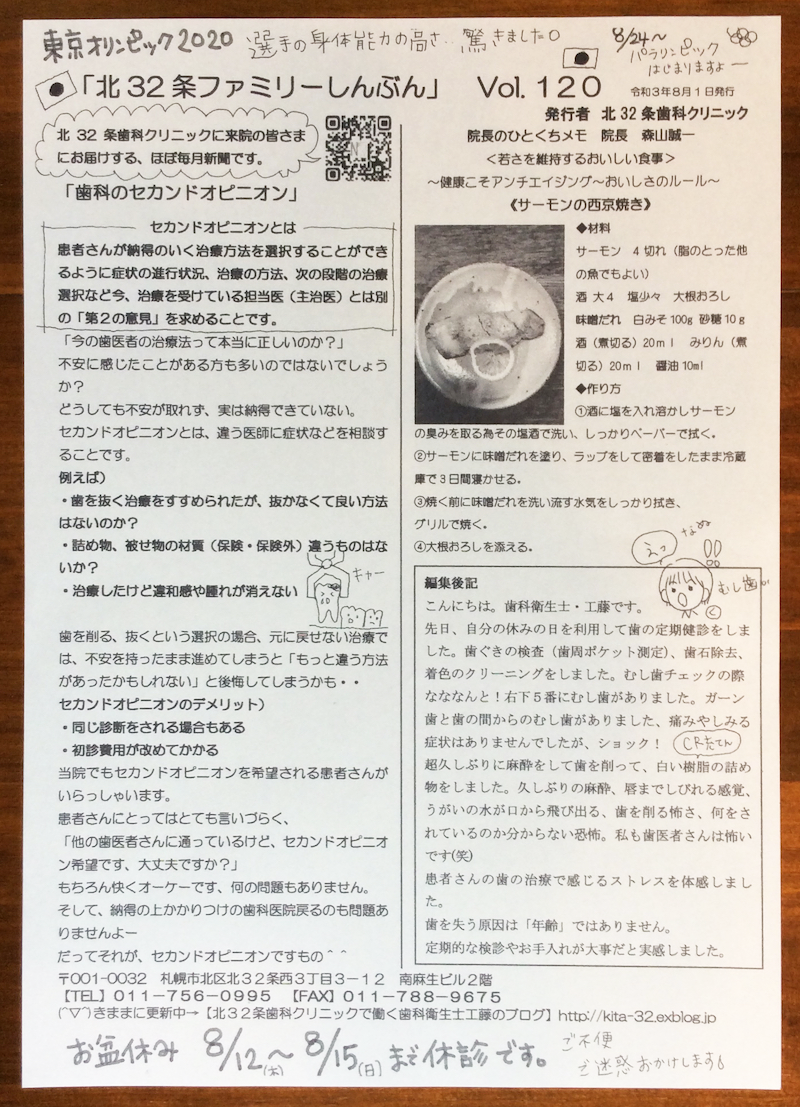 東京オリンピック2020 選手の身体能力の高さ‥驚きました。
8/24〜
パラリンピック
はじまりますよー
「北32条ファミリーしんぶん」 Vol.120 令和3年8月1日発行
北32条歯科クリニックに来院の皆さま
にお届けする、ほぼ毎月新聞です。
「歯科のセカンドオピニオン」
セカンドオピニオンとは
患者さんが納得のいく治療方法を選択することができ
るように症状の進行状況、治療の方法、次の段階の治療
選択など今、治療を受けている担当医（主治医）とは別
の「第2の意見」を求めることです。
「今の歯医者の治療法って本当に正しいのか？」
不安に感じたことがある方も多いのではないでしょう
か？
どうしても不安が取れず、実は納得できていない。
セカンドオピニオンとは、違う医師に症状などを相談す
ることです。
例えば）
・歯を抜く治療をすすめられたが、抜かなくて良い方法
はないのか？
・詰め物、被せ物の材質（保険・保険外）違うものはな
いか？
・治療したけど違和感や腫れが消えない
キャー
歯を削る、抜くという選択の場合、元に戻せない治療で
は、不安を持ったまま進めてしまうと「もっと違う方法
があったかもしれない」と後悔してしまうかも・・
セカンドオピニオンのデメリット）
・同じ診断をされる場合もある
・初診費用が改めてかかる
当院でもセカンドオピニオンを希望される患者さんが
いらっしゃいます。
患者さんにとってはとても言いづらく、
「他の歯医者さんに通っているけど、セカンドオピニオ
ン希望です、大丈夫ですか？」
もちろん快くオーケーです、何の問題もありません。
そして、納得の上かかりつけの歯科医院戻るのも問題あ
りませんよー
だってそれが、セカンドオピニオンですもの＾＾
発行者 北32条歯科クリニック
院長のひとくちメモ 院長 森山誠一
＜若さを維持するおいしい食事＞
〜健康こそアンチエイジング〜おいしさのルール〜
《サーモンの西京焼き》
◆材料
サーモン 4切れ（脂のとった他
の魚でもよい）
酒 大4 塩少々 大根おろし
味噌だれ 白みそ100g 砂糖10g
酒（煮切る）20ml みりん（煮
切る）20ml 醤油10ml
◆作り方
①酒に塩を入れ溶かしサーモン
の臭みを取る為その塩酒で洗い、しっかりペーパーで拭く。
②サーモンに味噌だれを塗り、ラップをして密着をしたまま冷蔵
庫で3日間寝かせる。
③焼く前に味噌だれを洗い流す水気をしっかり拭き、
グリルで焼く。
④大根おろしを添える。
えっ
なぬ
!!
むし歯
編集後記
こんにちは。歯科衛生士・工藤です。
先日、自分の休みの日を利用して歯の定期健診をしまし
た。歯ぐきの検査（歯周ポケット測定）、歯石除去、
着色のクリーニングをしました。むし歯チェックの際
なななんと！右下5番にむし歯がありました。ガーン
歯と歯の間からのむし歯がありました、痛みやしみる
症状はありませんでしたが、ショック！
CR充てん
超久しぶりに麻酔をして歯を削って、白い樹脂の詰め
物をしました。久しぶりの麻酔、唇までしびれる感覚、
うがいの水が口から飛び出る、歯を削る怖さ、何をさ
れているのか分からない恐怖。私も歯医者さんは怖い
です(笑)
患者さんの歯の治療で感じるストレスを体感しまし
た。
歯を失う原因は「年齢」ではありません。
定期的な検診やお手入れが大事だと実感しました。
〒001-0032 札幌市北区北32条西3丁目3－12 南麻生ビル2階
【TEL】011－756－0995 【FAX】011－788－9675
(^▽^)きままに更新中→【北32条歯科クリニックで働く歯科衛生士工藤のブログ】http://kita-32.exblog.jp
お盆休み 8/12(木)〜8/15(日)まで休診です。
ご不便
ご迷惑おかけします。